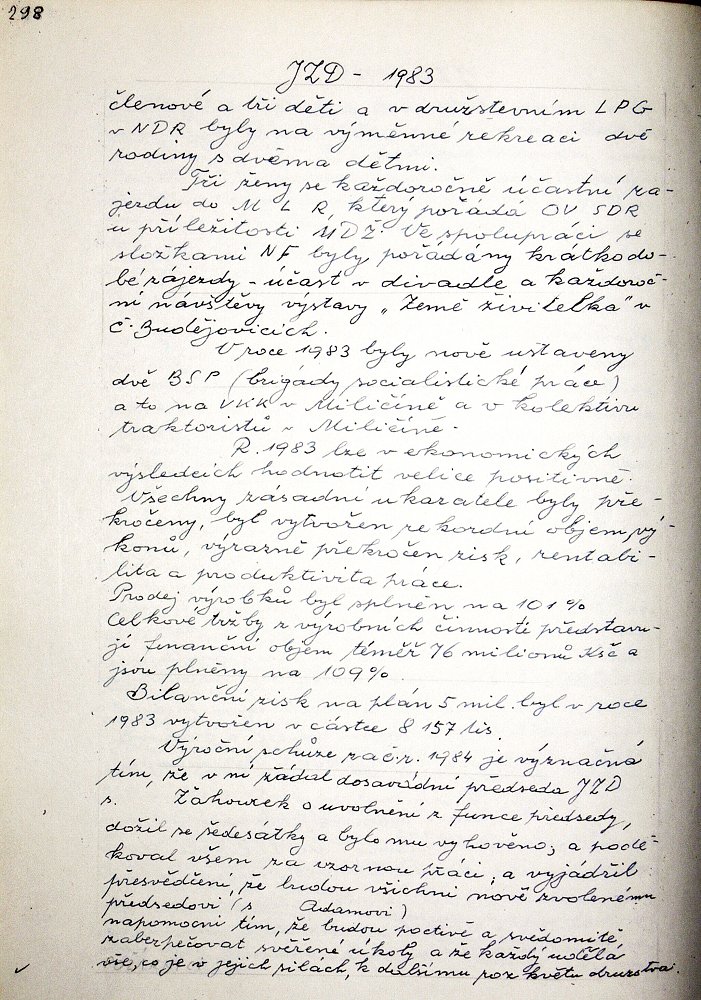 298
JZD - 1983
členové a tři děti a v družstevním LPG
v NDR byly na výměnné rekreaci dvě
rodiny s dvěma dětmi.
Tři ženy se každoročně účastní zá-
jezdu do M L R, který pořádá OV SDR
u příležitosti MDŽ. Ve spolupráci se
složkami NF byly pořádány krátkodo-
bé zájezdy - účast v divadle a každoroč-
ní návštěvy výstavy „Země živitelka" v
Č. Budějovicích.
V roce 1983 byly nově ustaveny
dvě BSP (brigády socialistické práce)
a to na VKK v Miličíně a v kolektivu
traktoristů v Miličíně.
R. 1983 lze v ekonomických
výsledcích hodnotit velice positivně.
Všechny zásadní ukazatele byly pře-
kročeny, byl vytvořen rekordní objem vý-
konů, výrazně překročen zisk, rentabi-
lita a produktivita práce.
Prodej výrobků byl splněn na 101%
Celkové tržby z výrobních činností představu-
jí finanční objem téměř 76 milionů Kčs a
jsou plněny na 109%.
Bilanční zisk na plán 5 mil. byl v roce
1983 vytvořen v částce 8 157 tis.
Výroční schůze zač. r. 1984 je význačná
tím, že v ní žádal dosavadní předseda JZD
s. Žahourek o uvolnění z funce předsedy,
dožil se šedesátky a bylo mu vyhověno; a podě-
koval všem za vzornou práci, a vyjádřil
přesvědčení, že budou všichni nově zvolenému
předsedovi (s Adamovi)
nápomocni tím, že budou poctivě a svědomitě
zabezpečovat svěřené úkoly a že každý udělá
vše, co je v jejich silách, k dalšímu roz květu družstva.